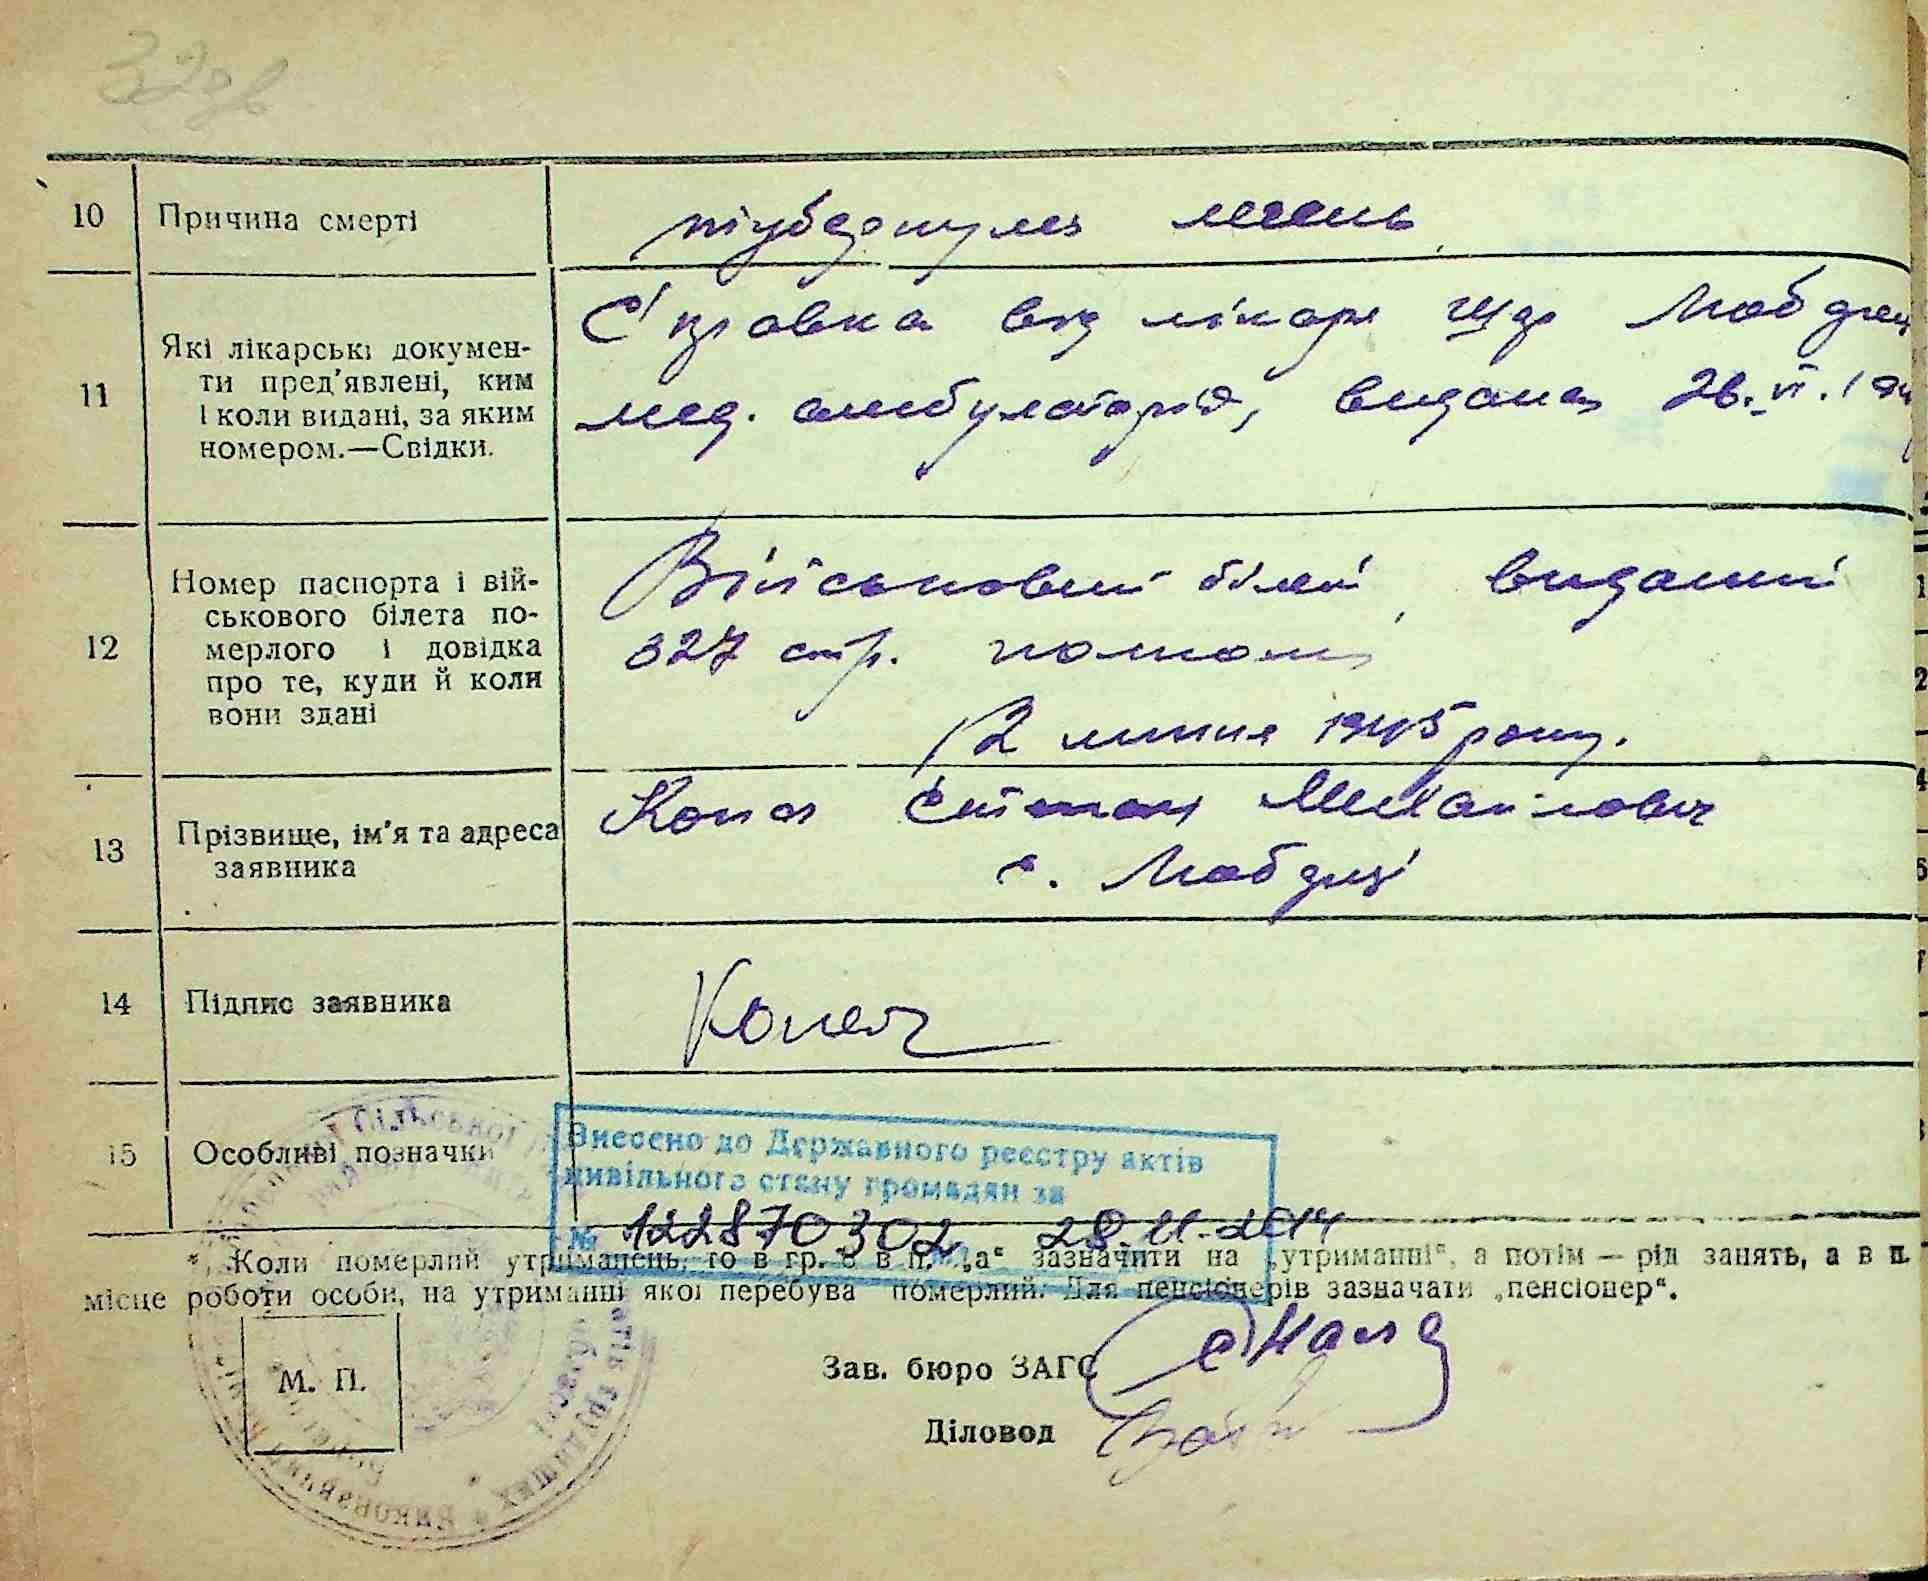 32зв
10 Причина смерті
туберкульоз легень
11 Які лікарські докумен-
ти пред'явлені, ким
і коли видані, за яким
номером.—Свідки.
Справка від лікаря
мед. амбулаторія, видана 26.VI.19
12 Номер паспорта і вій-
ськового білета по-
мерлого і довідка
про те, куди й коли
вони здані
Військовий білет, виданий
327 стр. полком
12 липня 1945 року.
13 Прізвище, ім'я та адреса
заявника
Копач Степан Михайлович
с. Любдзі
14 Підпис заявника
Копач
15 Особливі позначки
Внесено до Державного реєстру актів
цивільного стану громадян за
№ 122870302 28.11.2014
*, Коли померлий утриманець, то в гр. 8 в п. „а“ зазначити на „утриманні“, а потім — рід занять, а в п.
місце роботи особи, на утриманні якої перебува померлий. Для пенсіонерів зазначати „пенсіонер“.
М. П.
Зав. бюро ЗАГС
Діловод